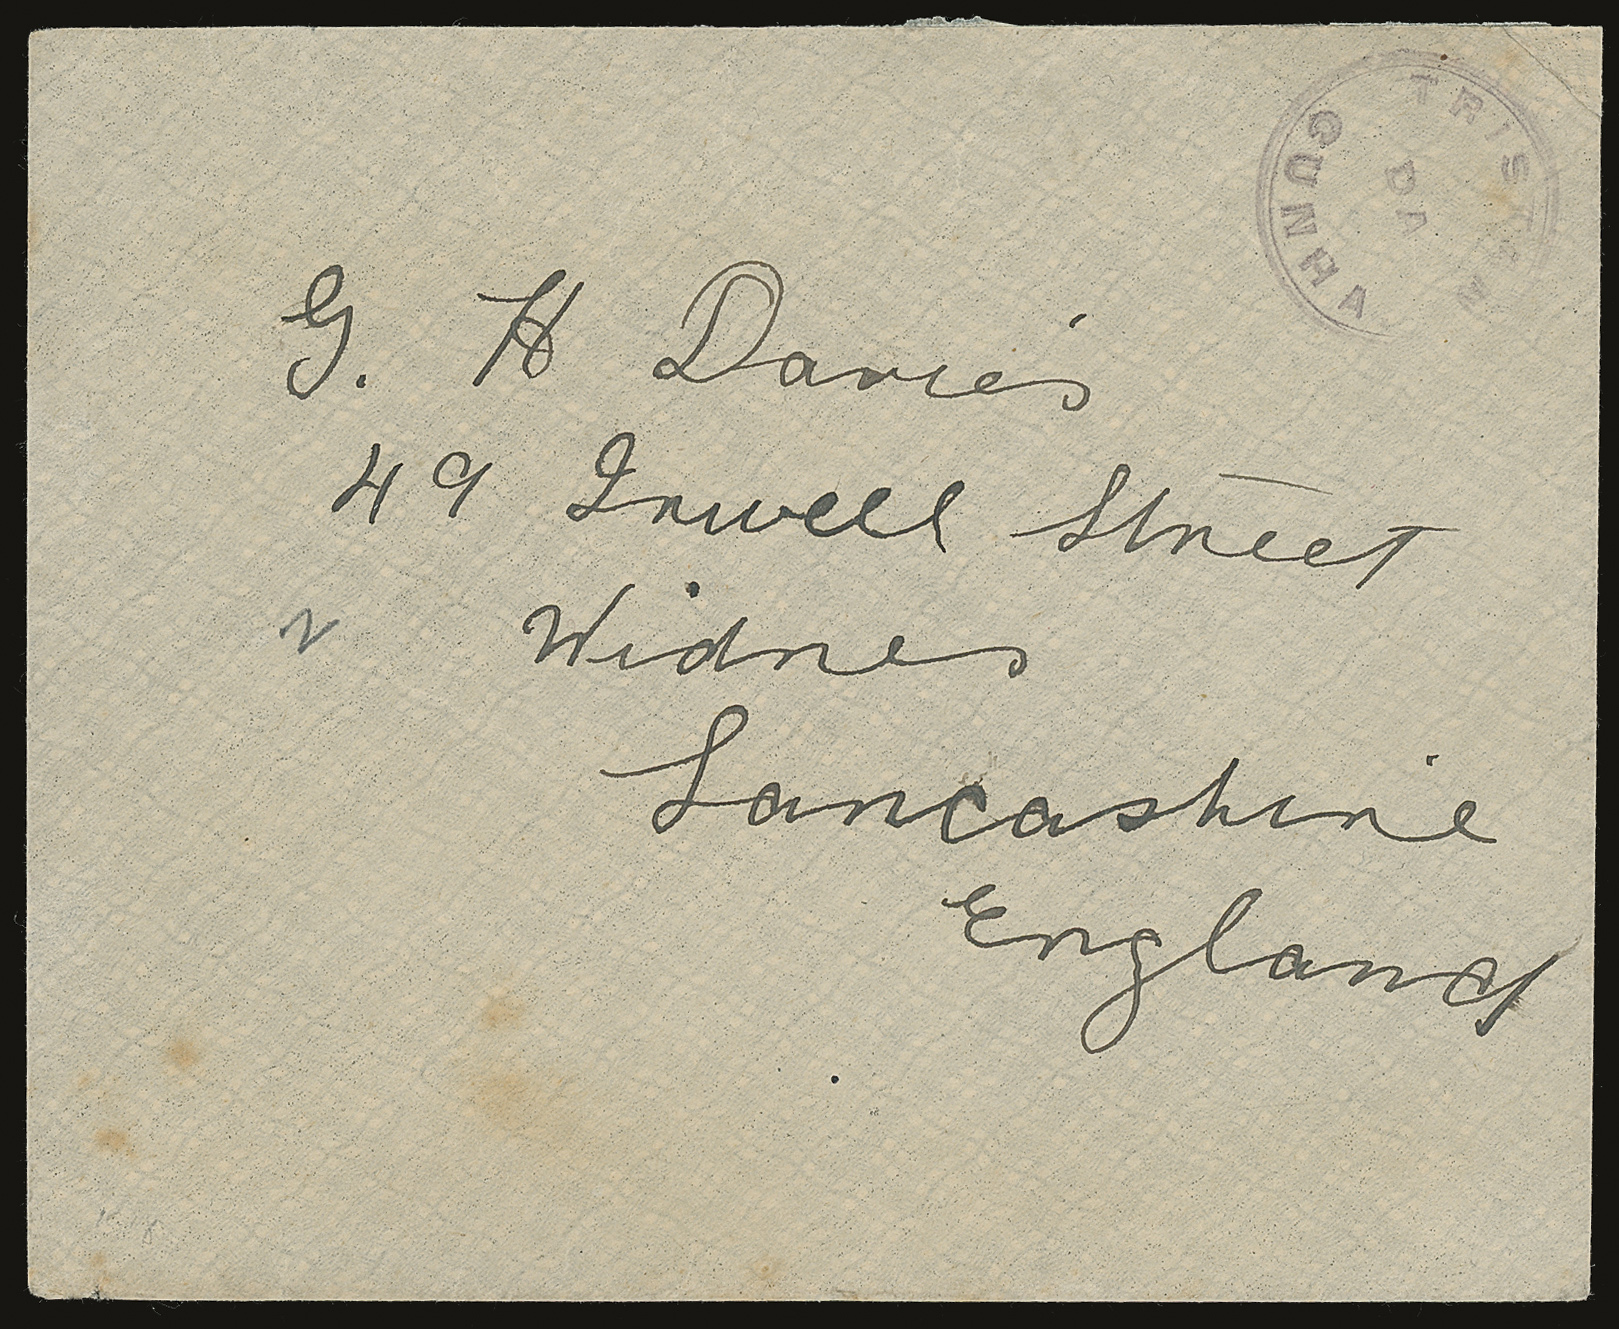 TRISTAN
DA
CUNHA
G. H Davies
49 Irwell Street
Widnes
Lancashire
England